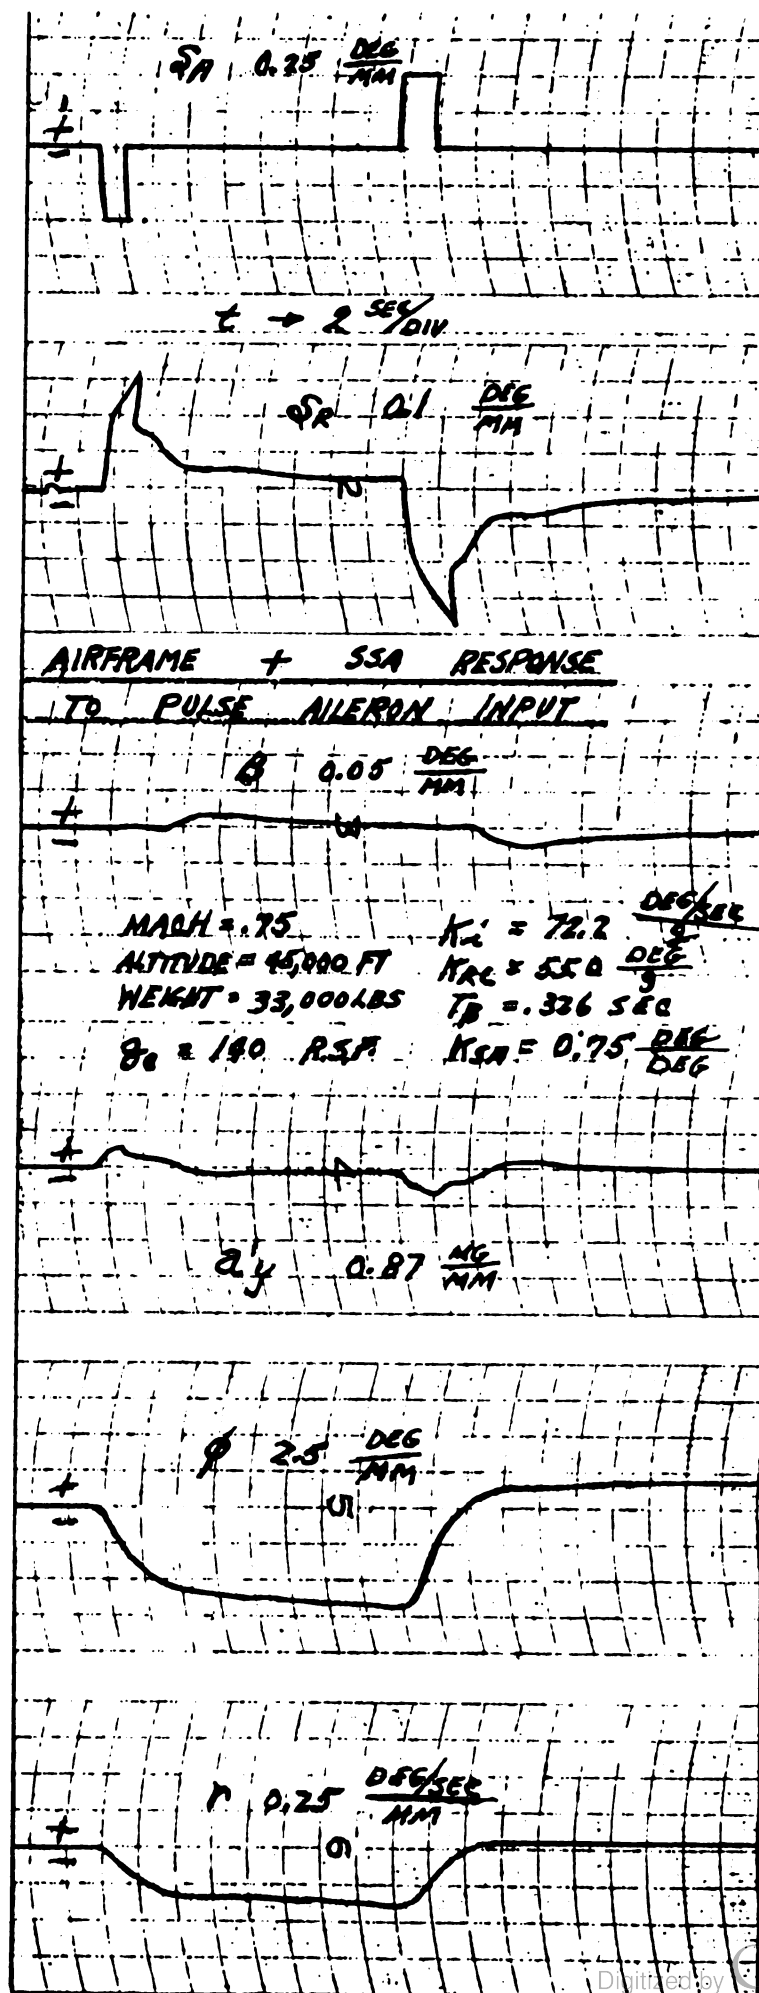 δA 0.25 DEG/MM
+
−
t → 2 SEC/DIV
δR 0.1 DEG/MM
+
−
2
AIRFRAME + SSA RESPONSE
TO PULSE AILERON INPUT
β 0.05 DEG/MM
+
−
3
MACH = .75
ALTITUDE = 45,000 FT
WEIGHT = 33,000 LBS
qc = 140 P.S.F.
Kṙ = 72.2 DEG/SEC/g
= 550 DEG/g
Tβ = .326 SEC
KSA = 0.75 DEG/DEG
+
−
4
a'y 0.87 MG/MM
φ 2.5 DEG/MM
+
−
5
r 0.25 DEG/SEC/MM
+
−
6
Digitized by